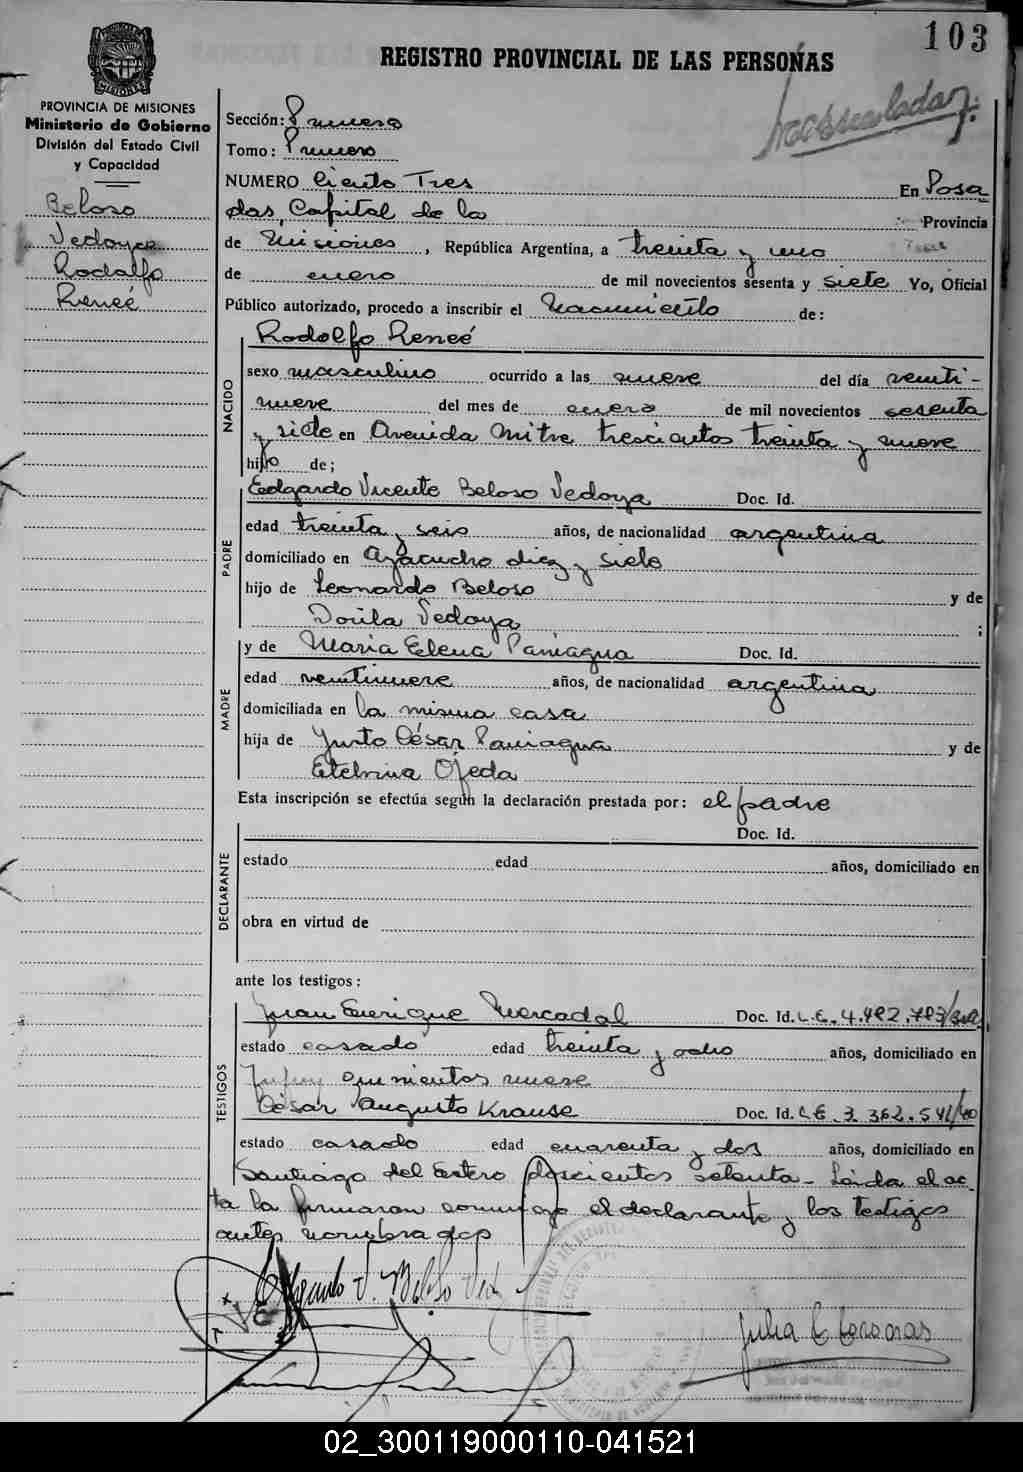 103
REGISTRO PROVINCIAL DE LAS PERSONAS
PROVINCIA DE MISIONES
Ministerio de Gobierno
División del Estado Civil
y Capacidad
Beloso
Vedoya
Rodolfo
Reneé
Sección: Primera
Tomo: Primero
NUMERO Ciento Tres En Posa
das, Capital de la Provincia
de Misiones, República Argentina, a treinta y uno
de enero de mil novecientos sesenta y siete Yo, Oficial
Público autorizado, procedo a inscribir el Nacimiento de:
Rodolfo Reneé
NACIDO
sexo masculino ocurrido a las nueve del día veinti-
nueve del mes de enero de mil novecientos sesenta
y siete en Avenida Mitre trescientos treinta y nueve
hijo de;
PADRE
Edgardo Vicente Beloso Vedoya Doc. Id.
edad treinta y seis años, de nacionalidad argentina
domiciliado en Ayacucho diez y siete
hijo de Leonardo Beloso y de
Dorila Vedoya ;
MADRE
y de Maria Elena Paniagua Doc. Id.
edad veintinueve años, de nacionalidad argentina
domiciliada en la misma casa
hija de Justo César Paniagua y de
Etelvina Ojeda
Esta inscripción se efectúa según la declaración prestada por: el padre
DECLARANTE
Doc. Id.
estado edad años, domiciliado en
obra en virtud de
ante los testigos:
TESTIGOS
Juan Enrique Mercadal Doc. Id. L.E. 4.482.783
estado casado edad treinta y ocho años, domiciliado en
Jujuy quinientos nueve
César Augusto Krause Doc. Id. L.E. 3.362.541/40
estado casado edad cuarenta y dos años, domiciliado en
Santiago del Estero doscientos setenta - Leída el ac-
ta la firmaron conmigo el declarante y los testigos
antes nombrados
Edgardo V. Beloso Ved
02_300119000110-041521